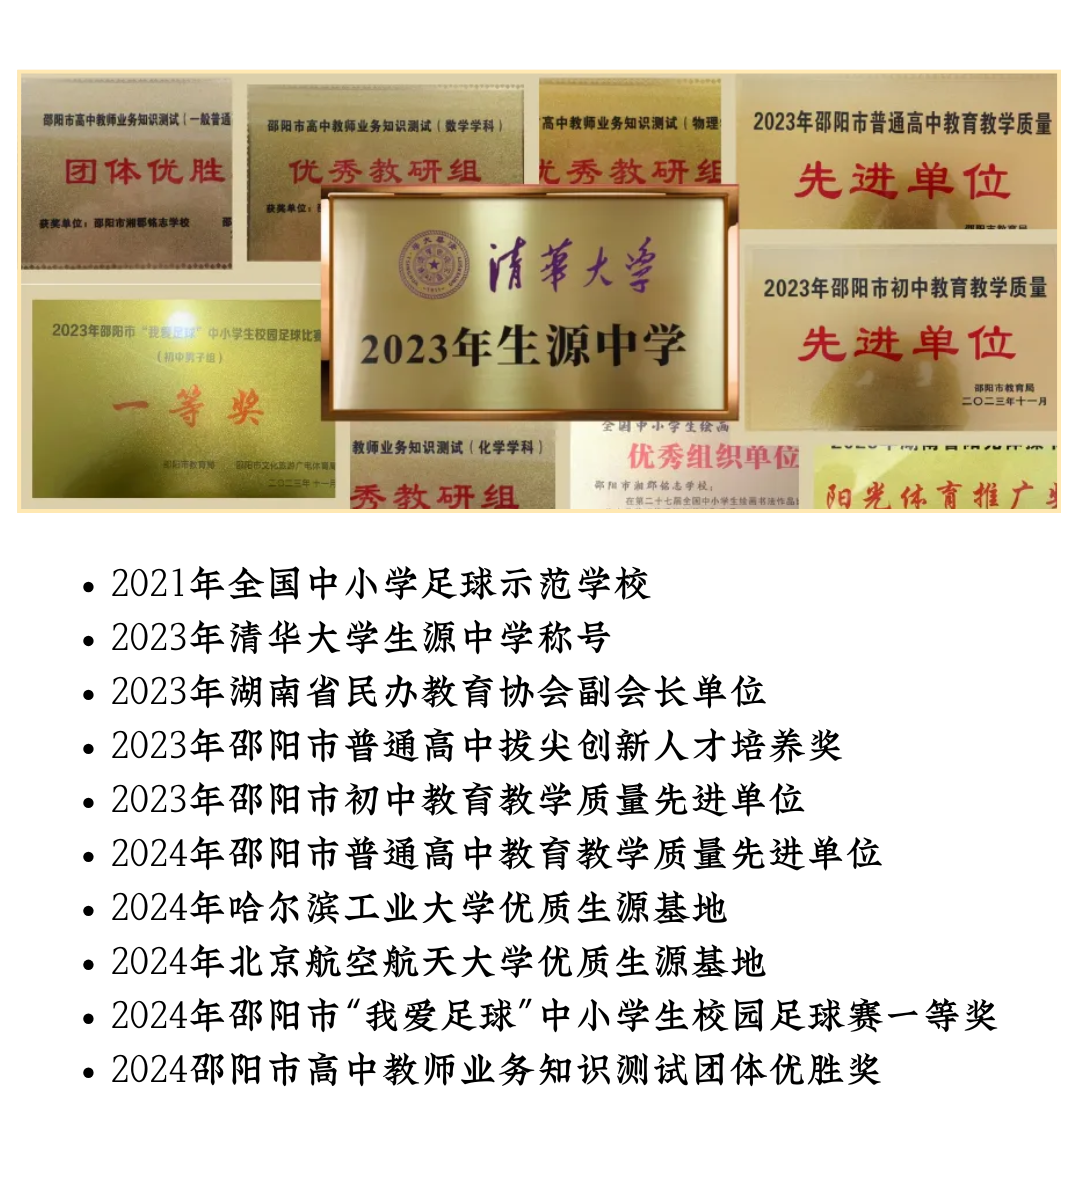 邵阳市高中教师业务知识测试（一般普通
团体优胜
获奖单位：邵阳市湘郡铭志学校
邵阳市高中教师业务知识测试（数学学科）
优秀教研组
获奖单位：
高中教师业务知识测试（物理
优秀教研组
2023年邵阳市普通高中教育教学质量
先进单位
邵阳市教育局
清华大学
2023年生源中学
2023年邵阳市初中教育教学质量
先进单位
邵阳市教育局
二〇二三年十一月
2023年邵阳市“我爱足球”中小学生校园足球比赛
（初中男子组）
一等奖
邵阳市教育局 邵阳市文化旅游广电体育局
二〇二三年十一月
教师业务知识测试（化学学科）
秀教研组
全国中小学生绘画
优秀组织单位
邵阳市湘郡铭志学校：
在第二十七届全国中小学生绘画书法作品
阳光体育推广奖
2021年全国中小学足球示范学校
2023年清华大学生源中学称号
2023年湖南省民办教育协会副会长单位
2023年邵阳市普通高中拔尖创新人才培养奖
2023年邵阳市初中教育教学质量先进单位
2024年邵阳市普通高中教育教学质量先进单位
2024年哈尔滨工业大学优质生源基地
2024年北京航空航天大学优质生源基地
2024年邵阳市“我爱足球”中小学生校园足球赛一等奖
2024邵阳市高中教师业务知识测试团体优胜奖